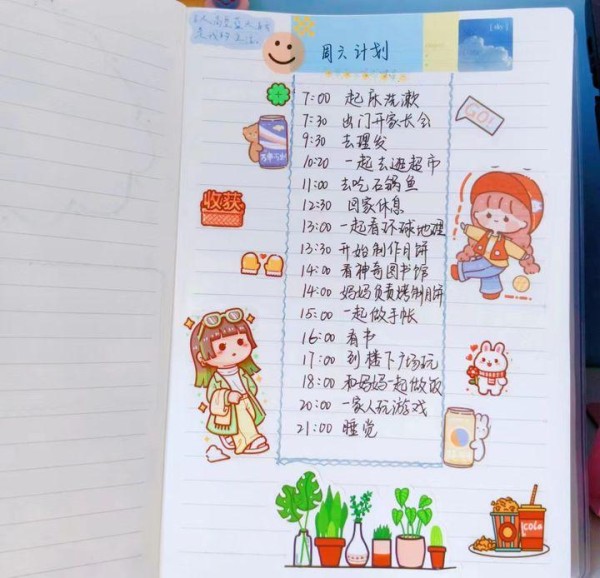 周六计划
7:00 起床洗漱
7:30 出门开家长会
9:30 去理发
10:20 一起去逛超市
11:00 去吃石锅鱼
12:30 回家休息
13:00 一起看环球地理
13:30 开始制作月饼
14:00 看神奇图书馆
14:00 妈妈负责烤制月饼
15:00 一起做手帐
16:00 看书
17:00 到楼下广场玩
18:00 和妈妈一起做饭
20:00 一家人玩游戏
21:00 睡觉
GO!
收获
cola